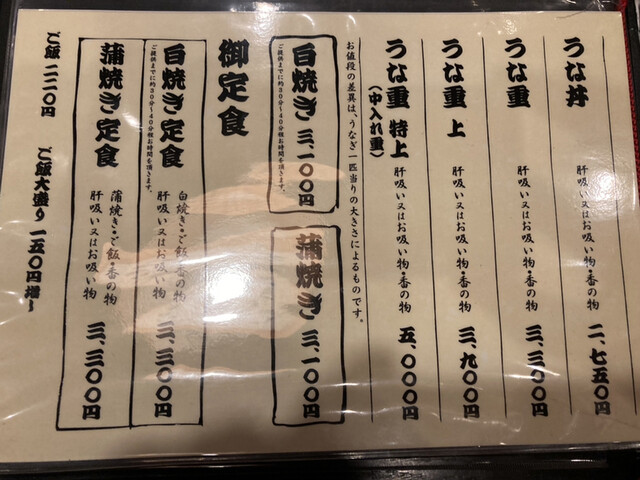 うな丼 肝吸い又はお吸い物・香の物 二、七五〇円
うな重 肝吸い又はお吸い物・香の物 三、三〇〇円
うな重 上 肝吸い又はお吸い物・香の物 三、九〇〇円
うな重 特上 肝吸い又はお吸い物・香の物 五、〇〇〇円
（中入れ重）
お値段の差異は、うなぎ一匹当りの大きさによるものです。
白焼き 三、一〇〇円
ご提供までに約30分〜40分程お時間を頂きます。
蒲焼き 三、一〇〇円
御定食
白焼き定食 白焼き・ご飯・香の物
肝吸い又はお吸い物 三、三〇〇円
ご提供までに約30分〜40分程お時間を頂きます。
蒲焼き定食 蒲焼き・ご飯・香の物
肝吸い又はお吸い物 三、三〇〇円
ご飯 二二〇円 ご飯大盛り 一五〇円増〜